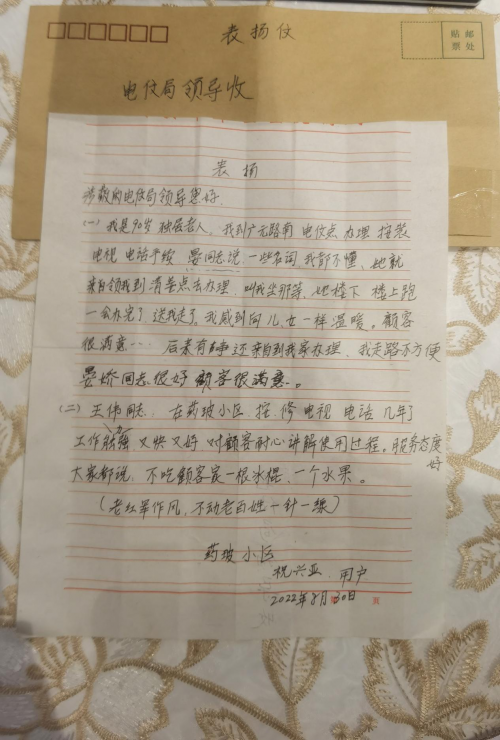 表扬仪
贴邮
票处
电仪局领导收
表扬
电仪局领导您好
(一)我是90岁独居老人。我到广元路南电仪点办理按装
电视电话手续晏同志说一些名词我都不懂,她就
亲自领我到清美点去办理叫我坐那等,她楼下楼上跑
一会办完了送我走了。我感到向儿女一样温暖。顾客
很满意… 后来有事还亲自到我家办理,我走路不方便
晏娇同志很好顾客很满意。
(二)王伟同志:在药玻小区按、修电视电话几年了
工作又快又好对顾客耐心讲解使用过程。服务态度好
大家都说:不吃顾客家一根冰棍,一个水果。
(老红军作风,不动老百姓一针一线)
药玻小区
祝兴亚 用户
2022年8月30日
页